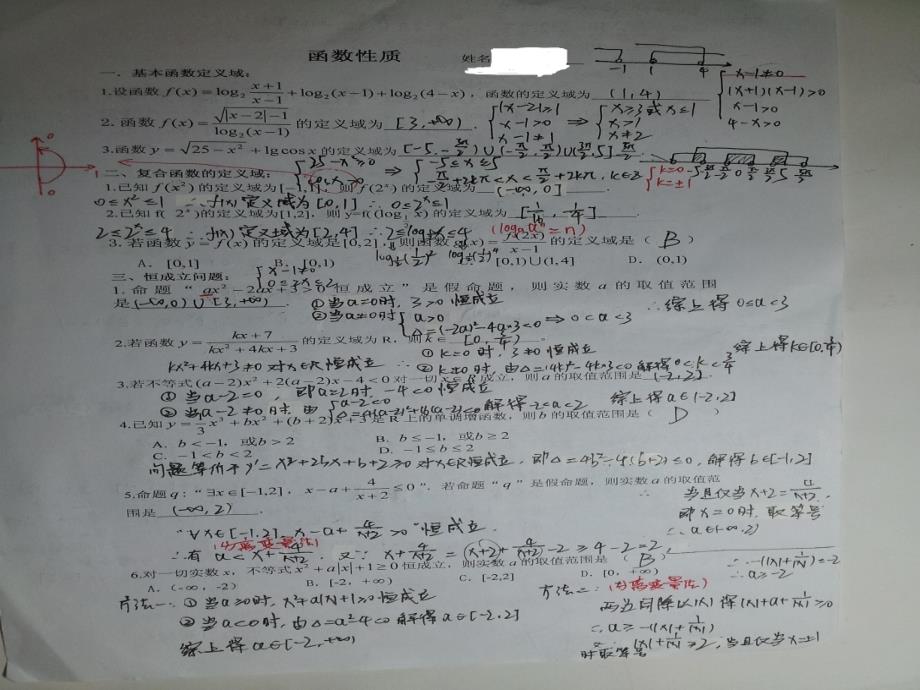 函数性质 姓名
一、基本函数定义域：
1.设函数 f(x)=log₂ (x+1)/(x-1) +log₂(x-1)+log₂(4-x)，函数的定义域为 (1,4)
2. 函数 f(x)= √(|x-2|-1) / log₂(x-1) 的定义域为 [3,+∞) . { |x-2|≥1 x-1>0 x-1≠1 ⇒ { x≥3或x≤1 x>1 x≠2
{ x-1≠0 (x+1)(x-1)>0 x-1>0 4-x>0
-1 1 4
3.函数 y=√(25-x²)+lgcosx 的定义域为 [-5,-3π/2)∪(-π/2,π/2)∪(3π/2,5]
{ 25-x²≥0 cosx>0 ⇒ { -5≤x≤5 -π/2+2kπ<x<π/2+2kπ, k∈Z { k=0 k=±1
二、复合函数的定义域：
1.已知 f(x²) 的定义域为[-1,1]，则 f(2ˣ) 的定义域为 (-∞,0]
0≤x²≤1 ∴f(x)定义域为[0,1] ∴0≤2ˣ≤1
2.已知 f( 2ˣ )的定义域为[1,2]，则 y=f( log x )的定义域为 [1/16,1/4]
2≤2ˣ≤4 ∴f(x)定义域为[2,4] ∴2≤log x≤4 (logₐaⁿ=n)
3. 若函数 y=f(x) 的定义域是[0,2]，则函数 g(x)= f(2x)/(x-1) 的定义域是（ B ）
A. [0,1] B. [0,1) C. [0,1)∪(1,4] D. (0,1)
{ x-1≠0 0≤2x≤2
三、恒成立问题：
1. 命题“ ax²-2ax+3>0 恒成立”是假命题，则实数 a 的取值范围
是 (-∞,0)∪[3,+∞) ①当a=0时, 3>0恒成立 ∴综上得0≤a<3
②当a≠0时 { a>0 Δ=(-2a)²-4a×3<0 ⇒ 0<a<3
2.若函数 y= (kx+7)/(kx²+4kx+3) 的定义域为 R，则 k∈ [0,3/4) .
①k=0时, 3≠0恒成立 综上得k∈[0,3/4)
kx²+4kx+3≠0对x∈R恒成立 ∴②k≠0时,由Δ=(4k)²-4k×3<0解得0<k<3/4
3.若不等式(a-2)x²+2(a-2)x-4<0对一切x∈R成立，则a的取值范围是 (-2,2] .
①当a-2=0, 即a=2时, -4<0恒成立
②当a-2≠0时, 由{ a-2<0 Δ=4(a-2)²+16(a-2)<0 解得-2<a<2 综上得a∈(-2,2]
4.已知 y= 1/3 x³+bx²+(b+2)x+3是 R 上的单调增函数，则 b 的取值范围是（ D ）
A. b<-1，或b>2 B. b≤-1，或b≥2
C. -1<b<2 D. -1≤b≤2
问题等价于y'=x²+2bx+b+2≥0对x∈R恒成立, 即Δ=4b²-4(b+2)≤0, 解得b∈[-1,2]
5.命题 q：“∃x∈[-1,2]，x-a+ 4/(x+2) ≤0”. 若命题“q”是假命题，则实数 a 的取值范
围是 (-∞,2)
“∀x∈[-1,2], x-a+ 4/(x+2) >0”恒成立
(分离变量法)
∴有a<x+ 4/(x+2) , 又∵x+ 4/(x+2) =(x+2)+ 4/(x+2) -2≥4-2=2,
当且仅当x+2= 4/(x+2) ,
即x=0时, 取等号
∴a∈(-∞,2)
6.对一切实数 x，不等式 x²+a|x|+1≥0 恒成立，则实数 a 的取值范围是（ B ）
A. (-∞，-2) B. [-2，+∞) C. [-2,2] D. [0，+∞)
方法一: ①当a≥0时, x²+a|x|+1>0恒成立
②当a<0时, 由Δ=a²-4≤0解得a∈[-2,2]
综上得a∈[-2,+∞)
方法二: (分离变量法)
两边同除以|x| 得|x|+a+ 1/|x| ≥0
∴a≥-(|x|+ 1/|x|)
∵|x|+ 1/|x| ≥2, 当且仅当x=±1
时取等号
∴-(|x|+ 1/|x|)≤-2
∴a≥-2